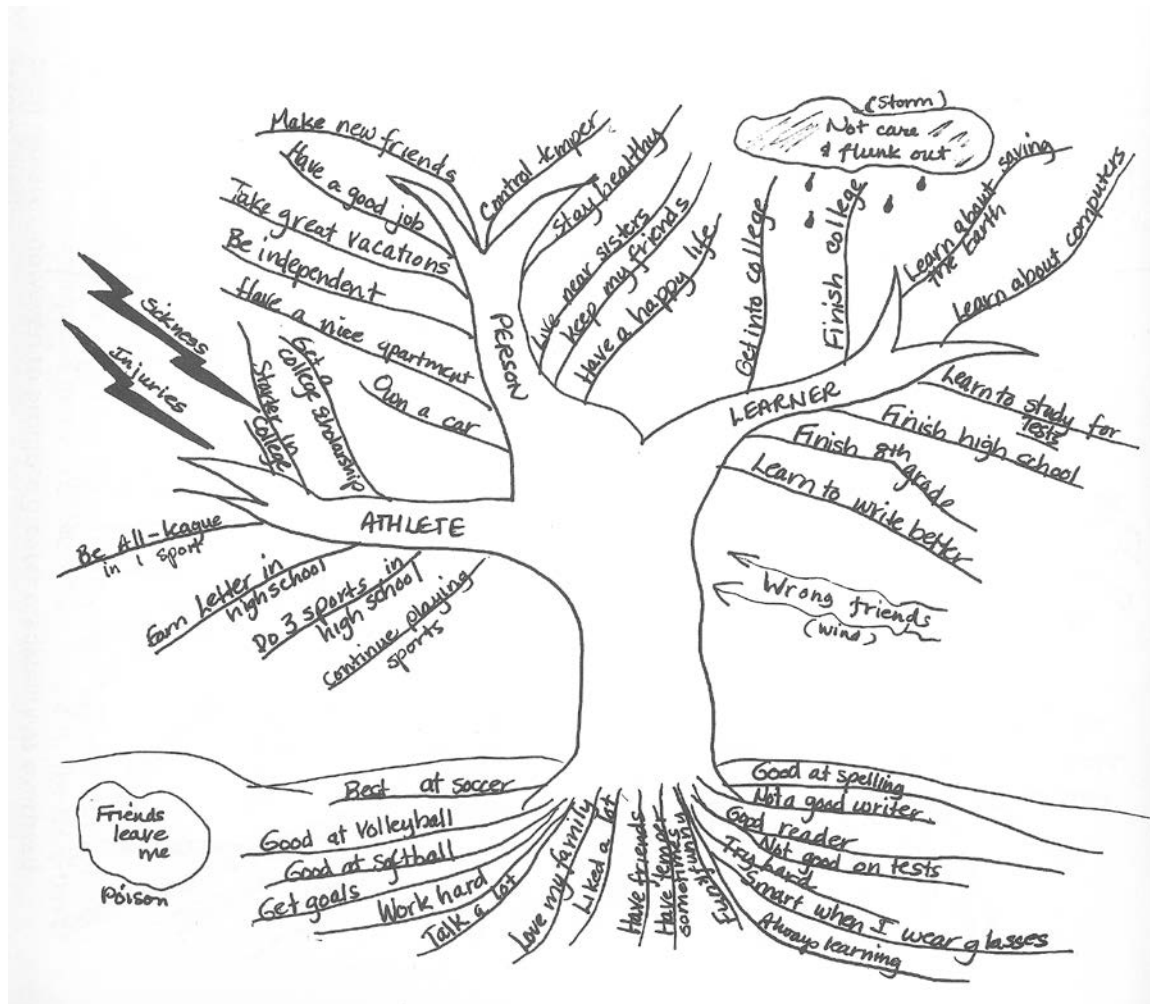 (Storm)
Not care
& flunk out
Make new friends
Have a good job
Take great vacations
Be independent
Have a nice apartment
Own a car
PERSON
Control temper
Stay healthy
Live near sisters
Keep my friends
Have a happy life
Get into college
Finish college
Learn about saving
the Earth
Learn about computers
LEARNER
Learn to study for
Tests
Finish high school
Finish 8th
grade
Learn to write better
Sickness
Injuries
Starter in
College
Get a
college scholarship
ATHLETE
Be All-league
in 1 sport
Earn Letter in
high school
Do 3 sports in
high school
Continue playing
sports
Wrong friends
(wind)
Friends
leave
me
Poison
Best at soccer
Good at volleyball
Good at softball
Get goals
Work hard
Talk a lot
Love my family
Liked a lot
Have friends
Have temper
sometimes
Funny
Good at spelling
Not a good writer
Good reader
Not good on tests
Try hard
Smart when I wear glasses
Always learning